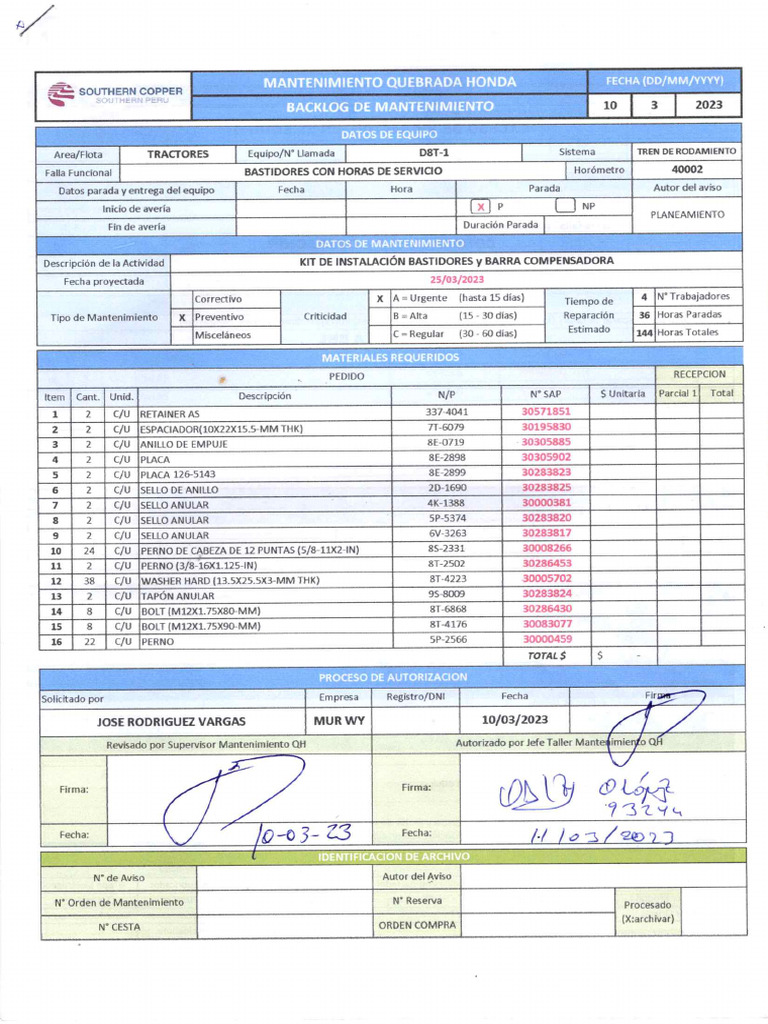 SOUTHERN COPPER
SOUTHERN PERU
MANTENIMIENTO QUEBRADA HONDA
BACKLOG DE MANTENIMIENTO
FECHA (DD/MM/YYYY)
10 3 2023
DATOS DE EQUIPO
Area/Flota TRACTORES Equipo/N° Llamada D8T-1 Sistema TREN DE RODAMIENTO
Falla Funcional BASTIDORES CON HORAS DE SERVICIO Horómetro 40002
Datos parada y entrega del equipo Fecha Hora Parada Autor del aviso
Inicio de avería X P NP PLANEAMIENTO
Fin de avería Duración Parada
DATOS DE MANTENIMIENTO
Descripción de la Actividad KIT DE INSTALACIÓN BASTIDORES y BARRA COMPENSADORA
Fecha proyectada 25/03/2023
Tipo de Mantenimiento Criticidad Tiempo de Reparación Estimado
Correctivo X A = Urgente (hasta 15 días) 4 N° Trabajadores
X Preventivo B = Alta (15 - 30 días) 36 Horas Paradas
Misceláneos C = Regular (30 - 60 días) 144 Horas Totales
MATERIALES REQUERIDOS
PEDIDO RECEPCION
Item Cant. Unid. Descripción N/P N° SAP $ Unitaria Parcial 1 Total
1 2 C/U RETAINER AS 337-4041 30571851
2 2 C/U ESPACIADOR(10X22X15.5-MM THK) 7T-6079 30195830
3 2 C/U ANILLO DE EMPUJE 8E-0719 30305885
4 2 C/U PLACA 8E-2898 30305902
5 2 C/U PLACA 126-5143 8E-2899 30283823
6 2 C/U SELLO DE ANILLO 2D-1690 30283825
7 2 C/U SELLO ANULAR 4K-1388 30000381
8 2 C/U SELLO ANULAR 5P-5374 30283820
9 2 C/U SELLO ANULAR 6V-3263 30283817
10 24 C/U PERNO DE CABEZA DE 12 PUNTAS (5/8-11X2-IN) 8S-2331 30008266
11 2 C/U PERNO (3/8-16X1.125-IN) 8T-2502 30286453
12 38 C/U WASHER HARD (13.5X25.5X3-MM THK) 8T-4223 30005702
13 2 C/U TAPÓN ANULAR 9S-8009 30283824
14 8 C/U BOLT (M12X1.75X80-MM) 8T-6868 30286430
15 8 C/U BOLT (M12X1.75X90-MM) 8T-4176 30083077
16 22 C/U PERNO 5P-2566 30000459
TOTAL $ $ -
PROCESO DE AUTORIZACION
Solicitado por Empresa Registro/DNI Fecha Firma
JOSE RODRIGUEZ VARGAS MUR WY 10/03/2023
Revisado por Supervisor Mantenimiento QH Autorizado por Jefe Taller Mantenimiento QH
Firma: Firma: O López
93244
Fecha: 10-03-23 Fecha: 11/03/2023
IDENTIFICACION DE ARCHIVO
N° de Aviso Autor del Aviso
N° Orden de Mantenimiento N° Reserva Procesado
(X:archivar)
N° CESTA ORDEN COMPRA